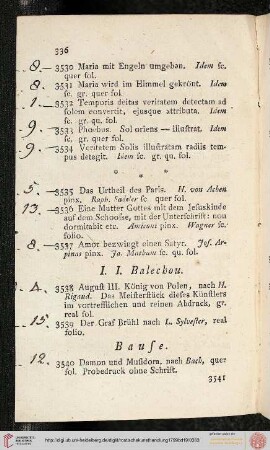 336
8. — 3530 Maria mit Engeln umgeben. Idem sc.
quer fol.
8. 3531 Maria wird im Himmel gekrönt. Idem
sc. gr. quer fol.
1. — 3532 Temporis deitas veritatem detectam ad
solem convertit, ejusque attributa. Idem
sc. gr. qu. fol.
9. — 3533 Phoebus. Sol oriens — illustrat. Idem
sc. gr. qu. fol.
9. — 3534 Veritatem Solis illustratam radiis tem-
pus detegit. Idem sc. gr. qu. fol.
* * *
5. — 3535 Das Urtheil des Paris. H. von Achen
pinx. Raph. Sadeler sc. quer fol.
13. — 3536 Eine Mutter Gottes mit dem Jesuskinde
auf dem Schoosse, mit der Unterschrift: non
dormitabit etc. Amiconi pinx. Wagner sc.
folio.
8. — 3537 Amor bezwingt einen Satyr. Jos. Ar-
pinas pinx. Ja. Matham sc. qu. fol.
I. I. Balechou.
4. 3538 August III. König von Polen, nach H.
Rigaud. Das Meisterstück dieses Künstlers
im vortrefflichen und reinen Abdruck, gr.
real fol.
15. 3539 Der Graf Brühl nach L. Sylvester, real
folio.
Bause.
12. 3540 Damon und Musidora, nach Bach, quer
fol. Probedruck ohne Schrift.
3541
http://digi.ub.uni-heidelberg.de/diglit/rostschekunsthandlung1799bd1/0350
UNIVERSITÄTS-
BIBLIOTHEK
HEIDELBERG